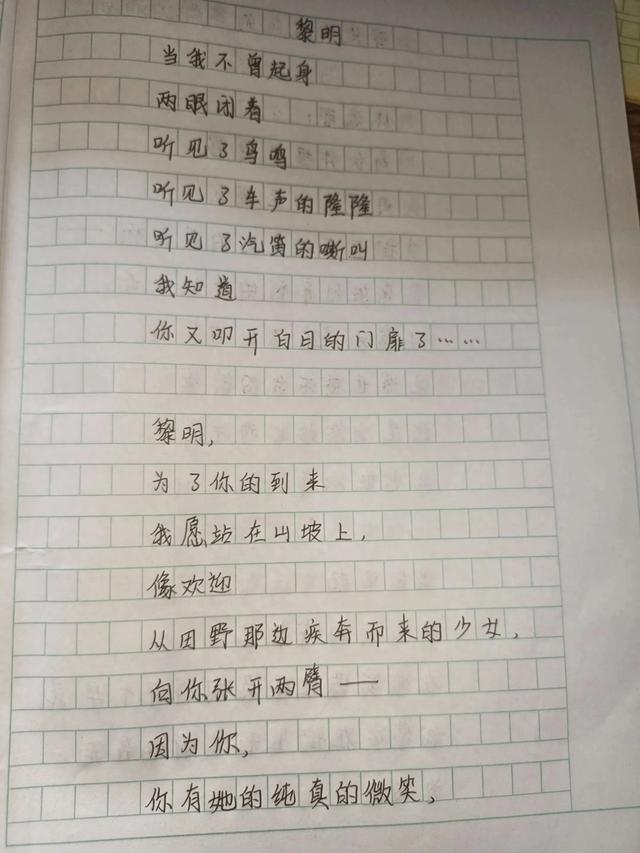 黎明
当我不曾起身
两眼闭着
听见了鸟鸣
听见了车声的隆隆
听见了汽笛的嘶叫
我知道
你又叩开白日的门扉了……
黎明,
为了你的到来
我愿站在山坡上,
像欢迎
从田野那边疾奔而来的少女,
向你张开两臂——
因为你,
你有她的纯真的微笑,